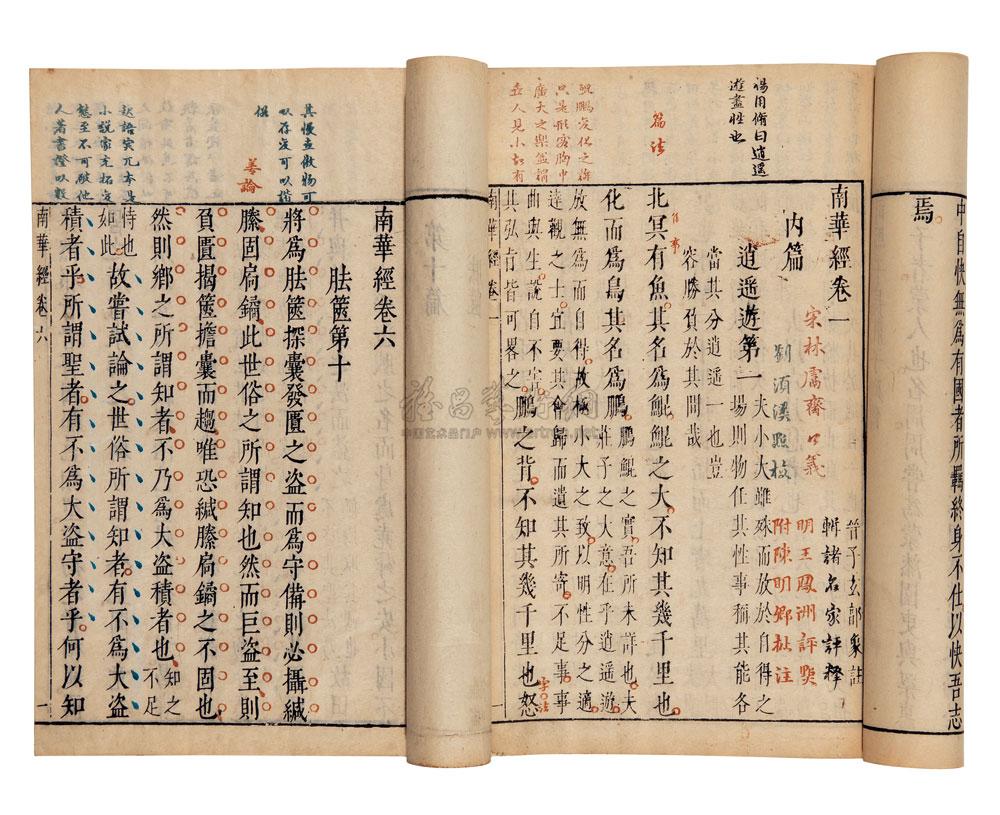 中自快無爲有國者所羈終身不仕以快吾志
焉
楊用脩曰逍遥
遊盡性也
南華經卷一
宋林鬳齋口義
劉須溪點校
晉子玄郭象註
輯諸名家評釋
明王鳳洲評點
附陳明卿批注
内篇
逍遥遊第一
夫小大雖殊而放於自得之
場則物任其性事稱其能各
當其分逍遥一也豈
容勝負於其間哉
篇法
北冥有魚其名爲鯤鯤之大不知其幾千里也
化而爲鳥其名爲鵬
鵬鯤之實吾所未詳也夫
莊子之大意在乎逍遥遊
放無爲而自得故極小大之致以明性分之適
達觀之士宜要其會歸而遺其所寄不足事事
曲與生說自不害
其弘旨皆可略之
鵬之背不知其幾千里也怒
字法
鯤鵬變化之論
只是形容胸中
廣大之樂
南華經卷一
一
南華經卷六
胠篋第十
將爲胠篋探囊發匱之盗而爲守備則必攝緘
縢固扃鐍此世俗之所謂知也然而巨盗至則
負匱揭篋擔囊而趨唯恐緘縢扃鐍之不固也
然則鄉之所謂知者不乃爲大盗積者也
知之
不足
恃也
如此
故嘗試論之世俗所謂知者有不爲大盗
積者乎所謂聖者有不爲大盗守者乎何以知
善論
南華經卷六
一